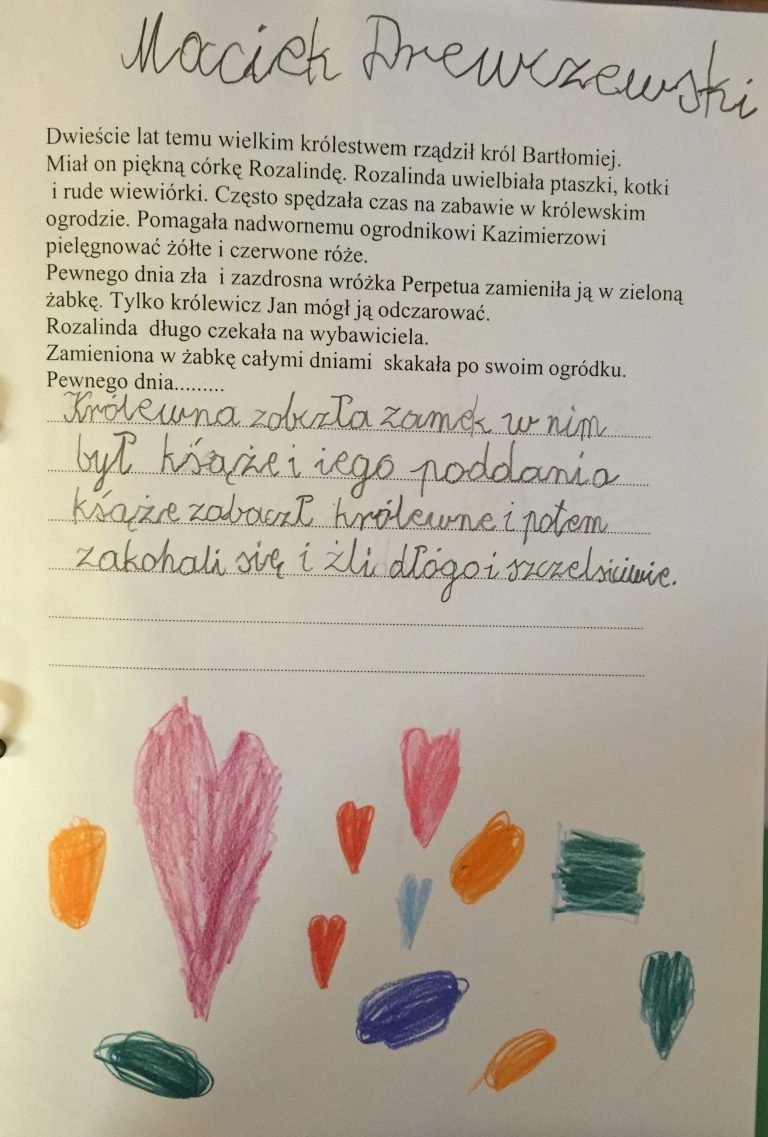 Maciek Drewczewski
Dwieście lat temu wielkim królestwem rządził król Bartłomiej.
Miał on piękną córkę Rozalindę. Rozalinda uwielbiała ptaszki, kotki
i rude wiewiórki. Często spędzała czas na zabawie w królewskim
ogrodzie. Pomagała nadwornemu ogrodnikowi Kazimierzowi
pielęgnować żółte i czerwone róże.
Pewnego dnia zła i zazdrosna wróżka Perpetua zamieniła ją w zieloną
żabkę. Tylko królewicz Jan mógł ją odczarować.
Rozalinda długo czekała na wybawiciela.
Zamieniona w żabkę całymi dniami skakała po swoim ogródku.
Pewnego dnia.........
Królewna zobczła zamek w nim
był ksśąże i iego poddania
ksśąże zabaczł królewne i potem
zakohali się i żli dłógo i szczelsiciwie.